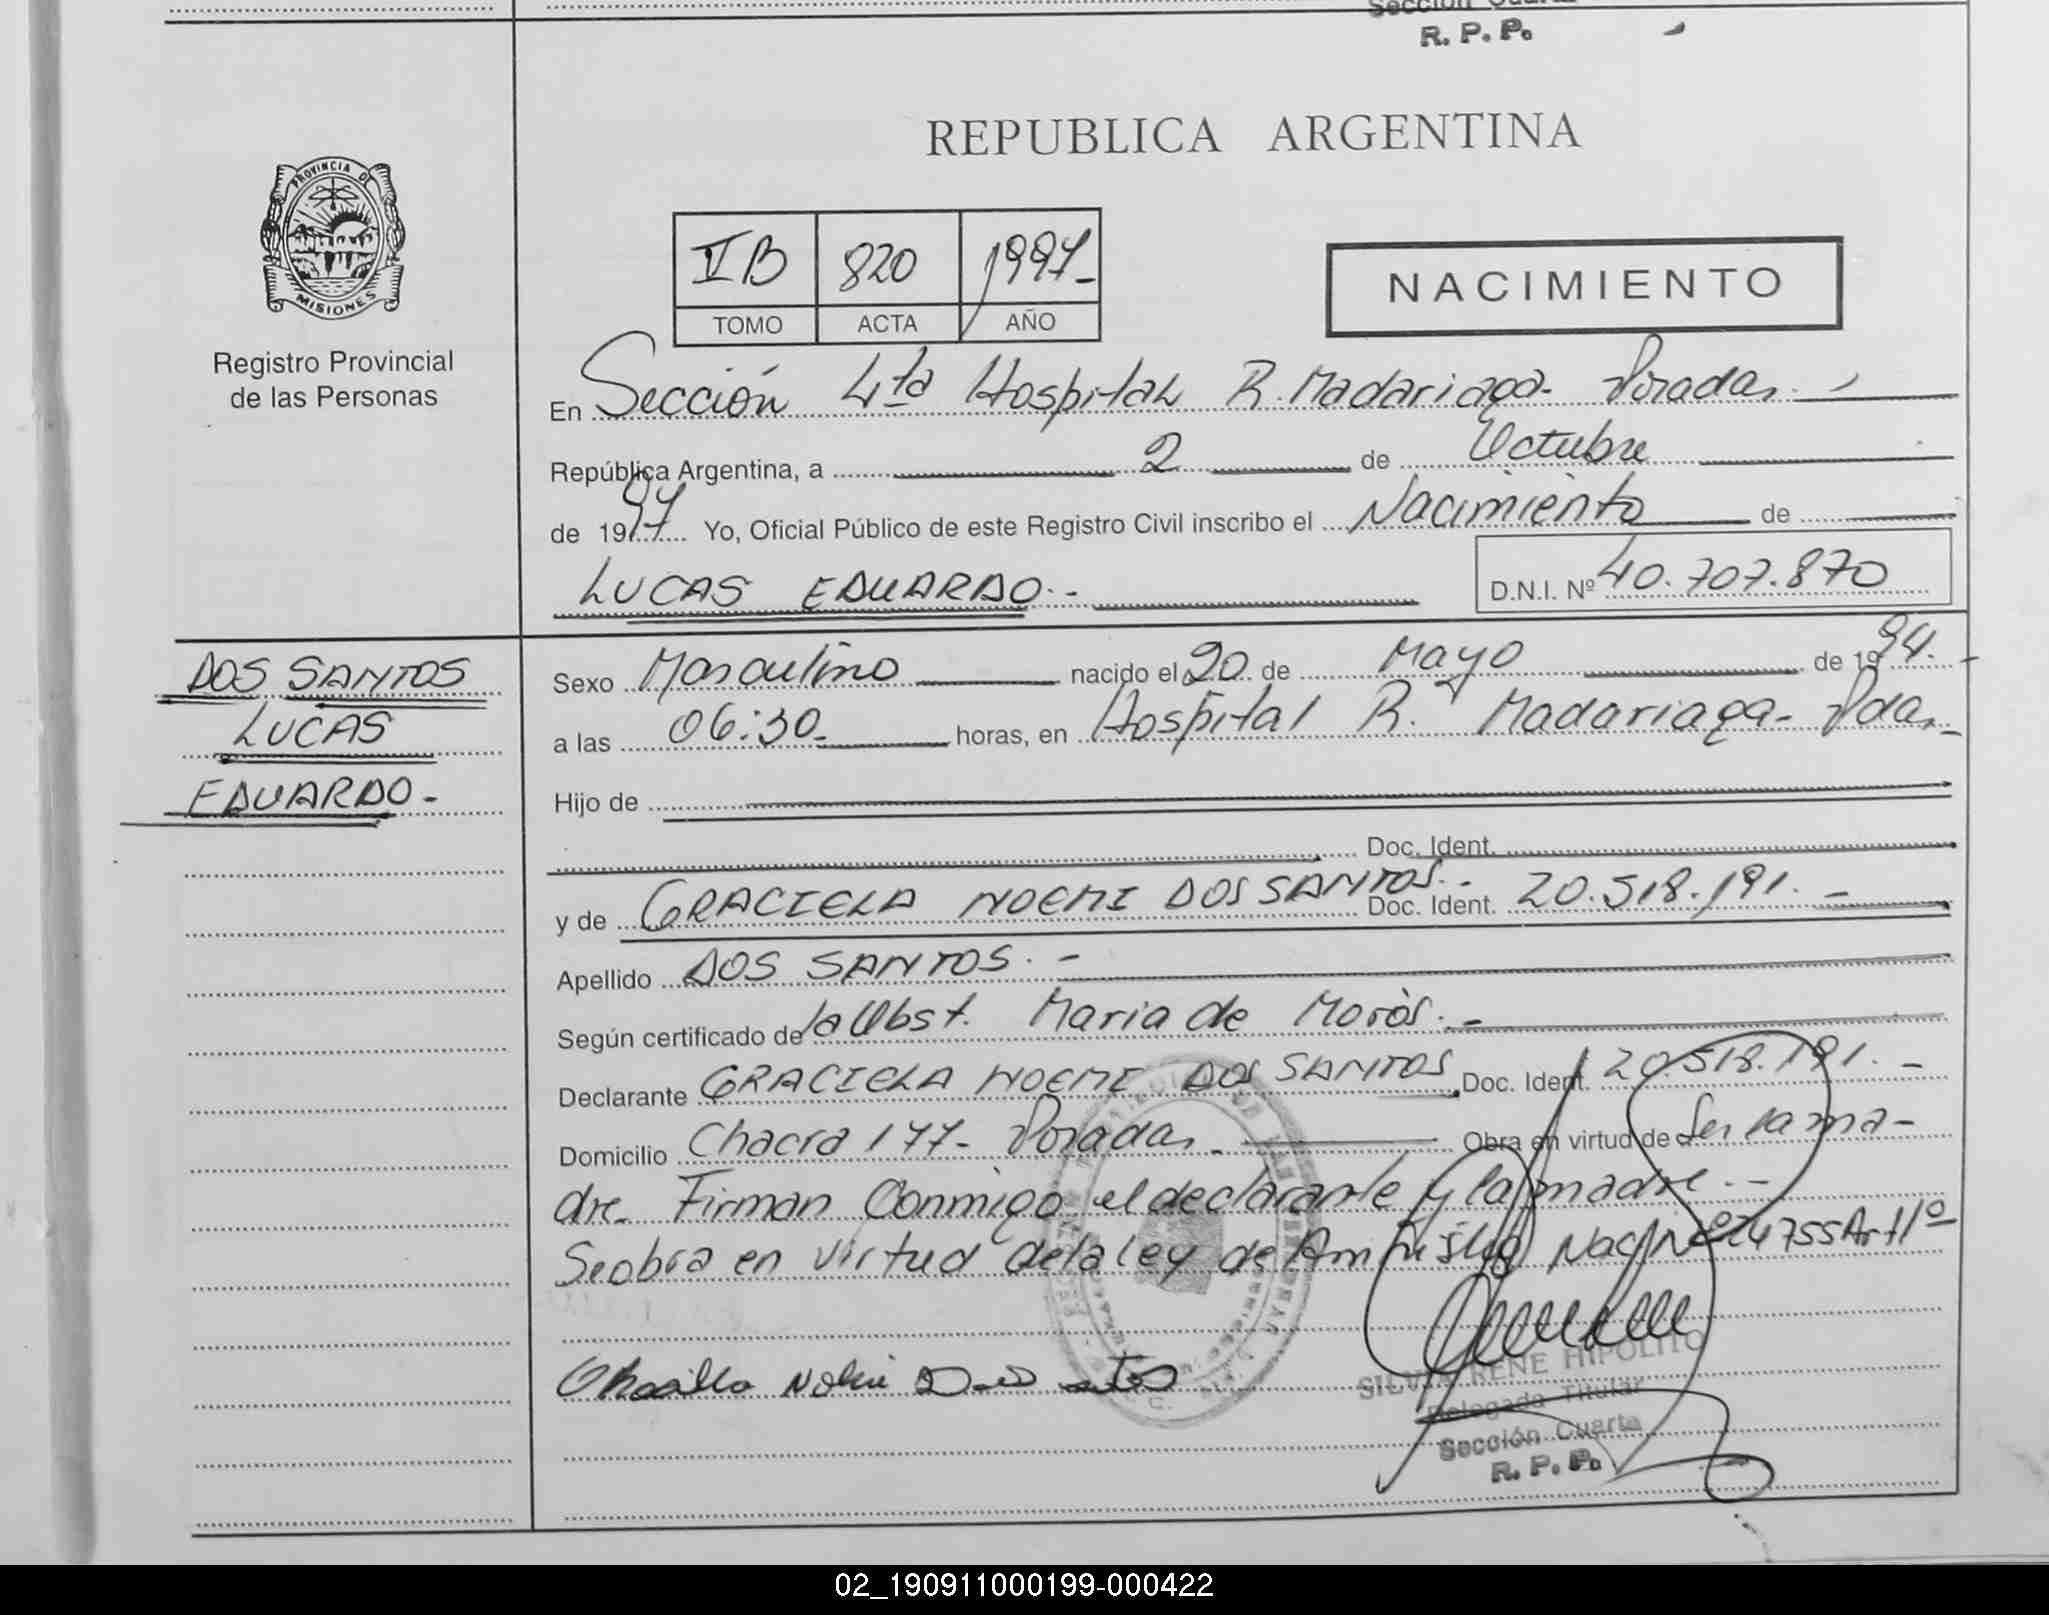 Sección Cuarta
R. P. P.
REPUBLICA ARGENTINA
PROVINCIA DE
MISIONES
Registro Provincial
de las Personas
V B 820 1997-
TOMO ACTA AÑO
NACIMIENTO
En Sección 4ta Hospital R. Madariaga- Posadas.
República Argentina, a 2 de Octubre
de 1997 Yo, Oficial Público de este Registro Civil inscribo el Nacimiento de
LUCAS EDUARDO.- D.N.I. Nº 40.707.870
DOS SANTOS
LUCAS
EDUARDO-
Sexo Masculino nacido el 20 de Mayo de 1994.
a las 06:30 horas, en Hospital R. Madariaga- Pdas.
Hijo de
Doc. Ident.
y de GRACIELA NOEMI DOS SANTOS.- Doc. Ident. 20.518.191.-
Apellido DOS SANTOS.-
Según certificado de la Obst. Maria de Moròs.-
Declarante GRACIELA NOEMI DOS SANTOS Doc. Ident. 20.518.191.-
Domicilio Chacra 177- Posadas. Obra en virtud de Ser la ma-
dre. Firman Conmigo el declarante y la madre.-
Se obra en virtud de la ley de Amnistía Nac Nº 24755 Art 1º
SILVIA RENE HIPOLITO
Delegada Titular
Sección Cuarta
R. P. P.
02_190911000199-000422